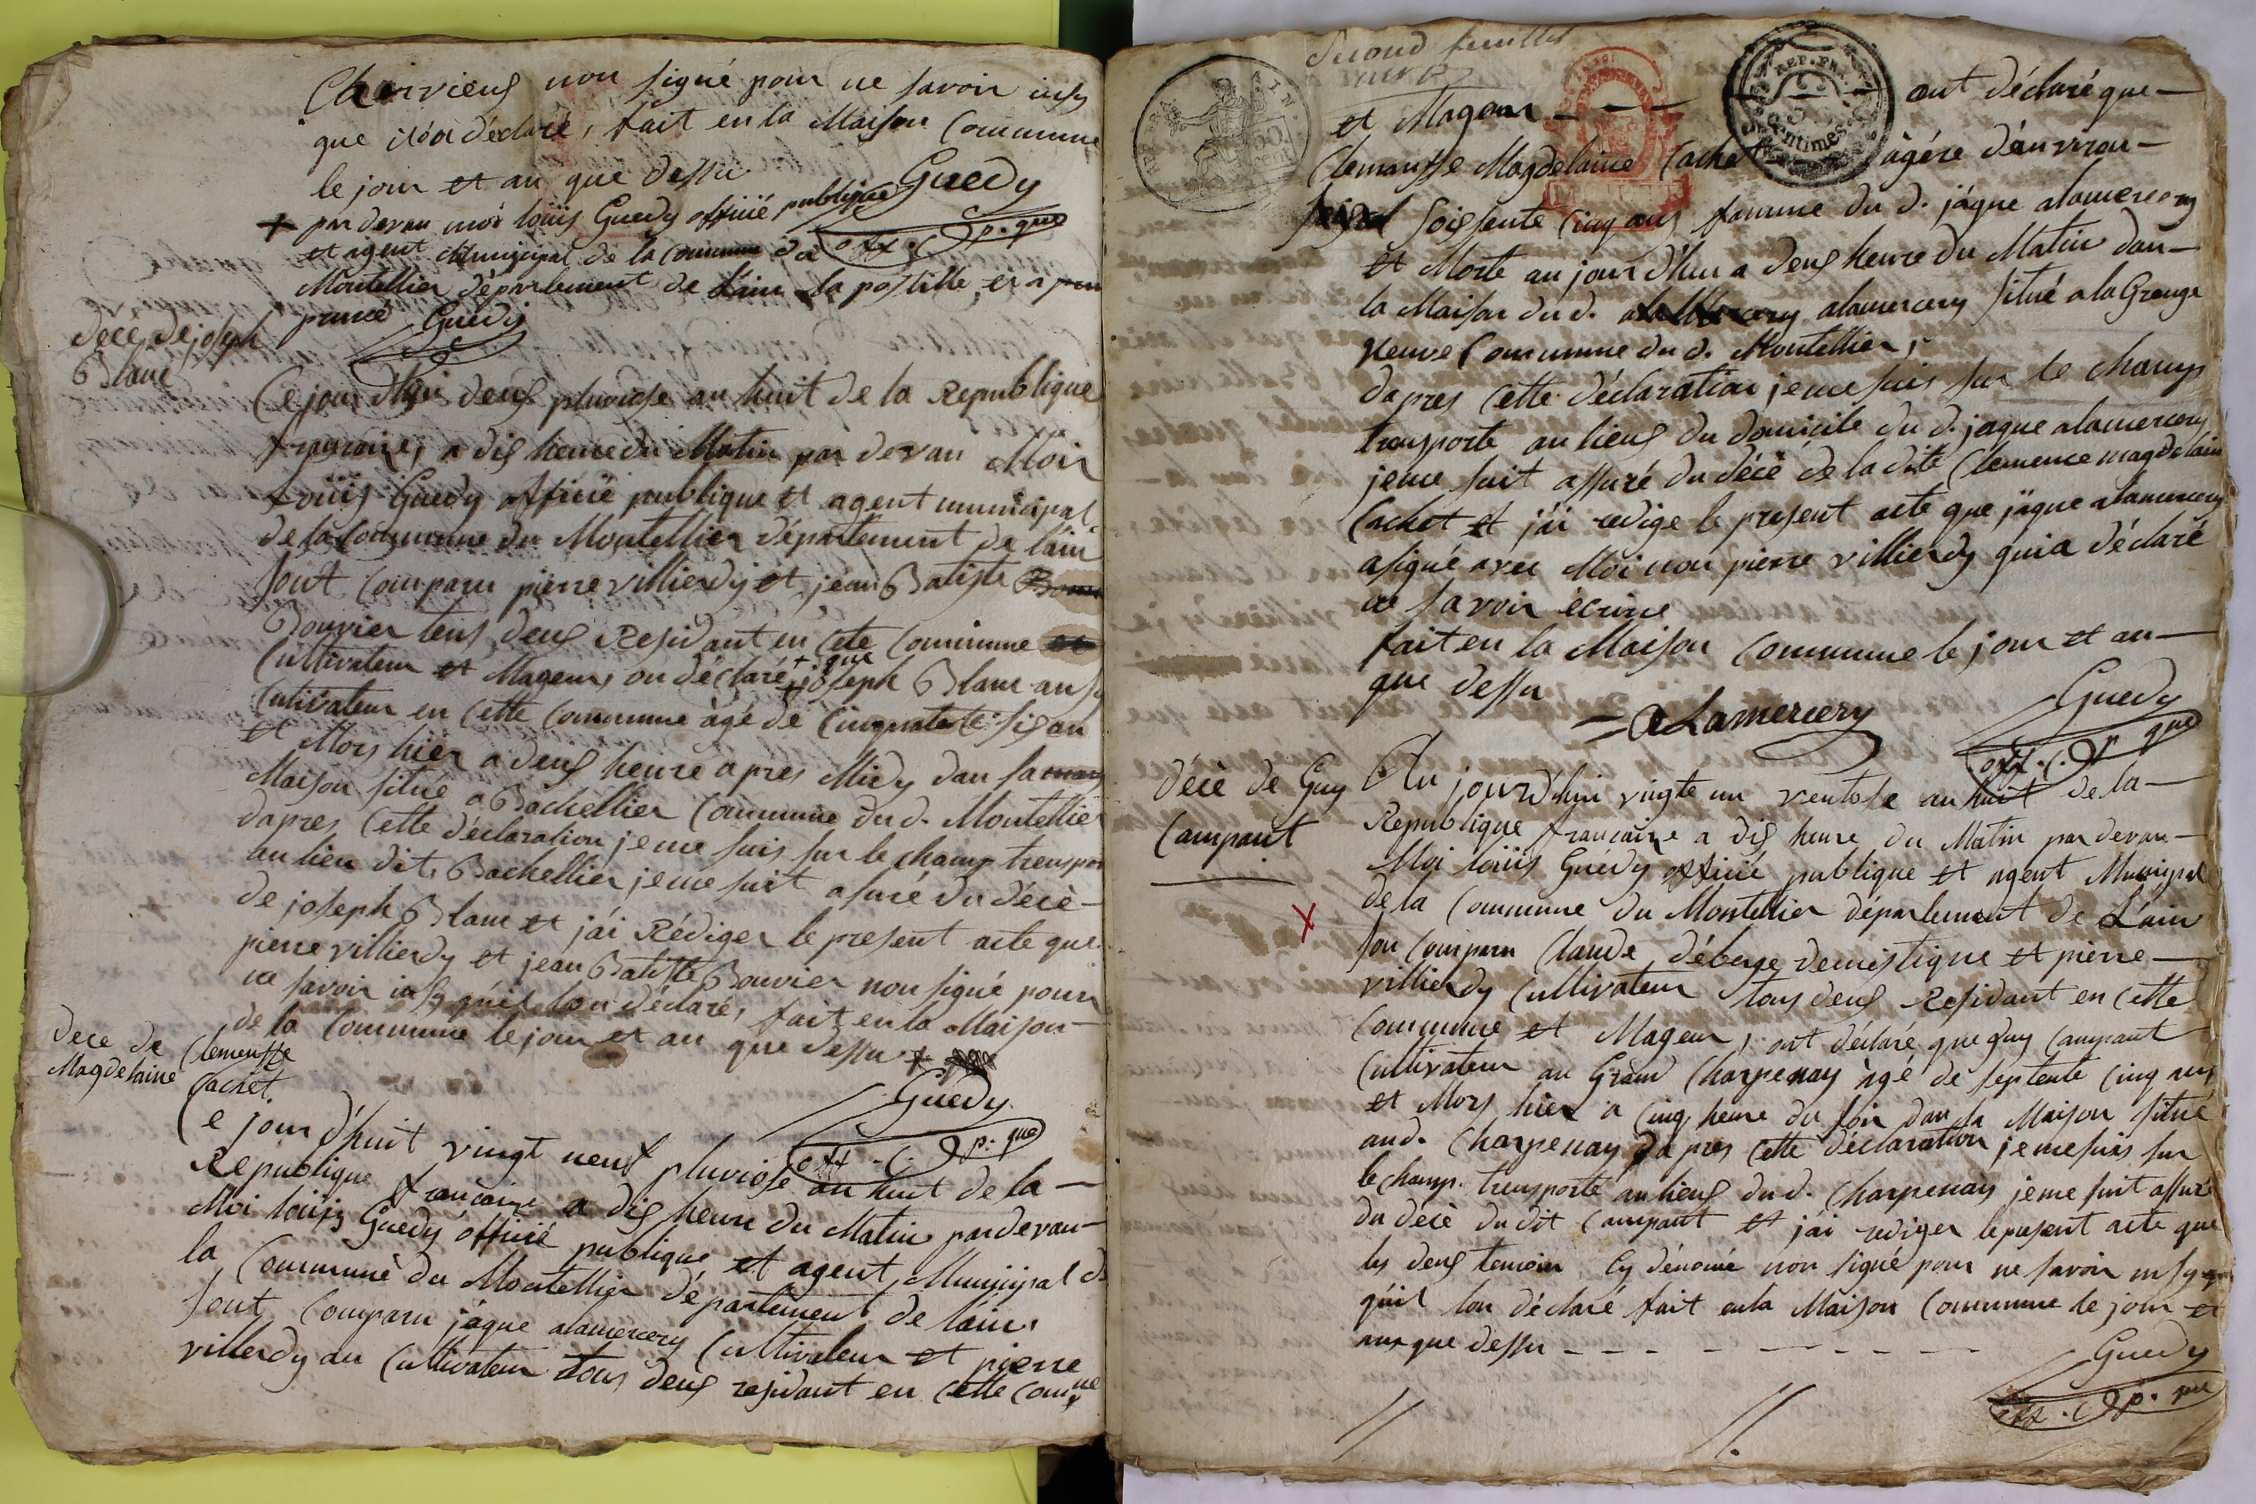 Chairviens non signé pour ne savoir insy
que il on déclaré, fait en la Maison Commune
le jour et an que dessu
Guedy
off. p. que
+ par devan moi loüis Guedy officié publique
et agent Municipal de la Commune de
Montellier département de l'ain la postille
Guedy
décè de joseph
Blanc
Ce jour d'hui deux pluviose an huit de la Republique
francaise, a dix heure du Matin par devan Moi
Loüis Guedy officié publique et agent municipal
de la Commune du Montellier département de l'ain
sont Comparu pierre villierdy et jean Batiste
Bouvier tous deux Residant en Cete Commune et
Cultivateur et Mageur, on déclaré + que joseph Blanc ausy
Cultivateur en Cette Commune àgé de Cinquate six an
et Mors hier a deux heure apres Midy dan sa
Maison situé a Bachellier Commune du d. Montellier
dapres Cette déclaration je me suis sur le champ transpor
au lieu dit Bachellier je me suit asuré du décè
de joseph Blanc et j'ái Rédiger le present acte que
pierre villierdy et jean Batiste Bouvier non signé pour
ne savoir insy quil lon déclaré, fait en la Maison
de la Commune le jour et an que dessu +
Guedy
off. C. p. que
dece de Clemensse
Magdelaine Cachet
Ce jour d'huit vingt neuf pluviose an huit de la
Republique francaise a dix heure du Matin par devan
Moi loüis Guedy officié publique et agent Municipal de
la Commune du Montellier département de l'ain,
sont Comparu jáque alamercery Cultivateur et pierre
villerdy au Cultivateur tous deux residant en Cette Comune
Second feuillet
REP. FRA.
50 cent
Centimes
et Mageur ont déclaré que
Clemansse Magdelaine Cachet àgére d'anviron
soissente Cinq ans famme du d. jáque alamercery
et Morte au jour d'hui a deux heure du Matin dan
la Maison du d. alamercery situé a la Grange
Neuve Commune du d. Montellier,
dapres Cette déclaration je me suis sur le champ
transporte au lieux du domicile du d. jaque alamercery
je me suit assuré du décè de la dite Clemence magdelain
Cachet et j'ái redige le present acte que jáque alamercery
a signé avec Moi non pierre villierdy qui a déclaré
ne savoir écrire
fait en la Maison Commune le jour et an
que dessu
aLamercery
Guedy
off. C. p. que
décè de Guy
Campant
Au jourd'hui vingte un ventose an huit de la
Republique francaise a dix heure du Matin par devan
Moi loüis Guedy officié publique et agent Municipal
de la Commune du Montellier département de L'ain
son Comparu Claude déberge demestique et pierre
villierdy Cultivateur tous deux Residant en Cette
Commune et Mageur, ont déclaré que guy Campant
Cultivateur au Grand Charpenay àgé de septente Cinq ans
et Mors hier a Cinq heure du soir dan sa Maison situé
au d. Charpenay dapres Cette déclaration je me suis sur
le champ transporté au lieux du d. Charpenay je me suit assuré
du décè du dit Campant et j'ái rediger le present acte que
les deux temoin Cy dénomé non signé pour ne savoir insy que
quil lon déclaré fait en la Maison Commune le jour et
an que dessu
Guedy
off. C. p. que